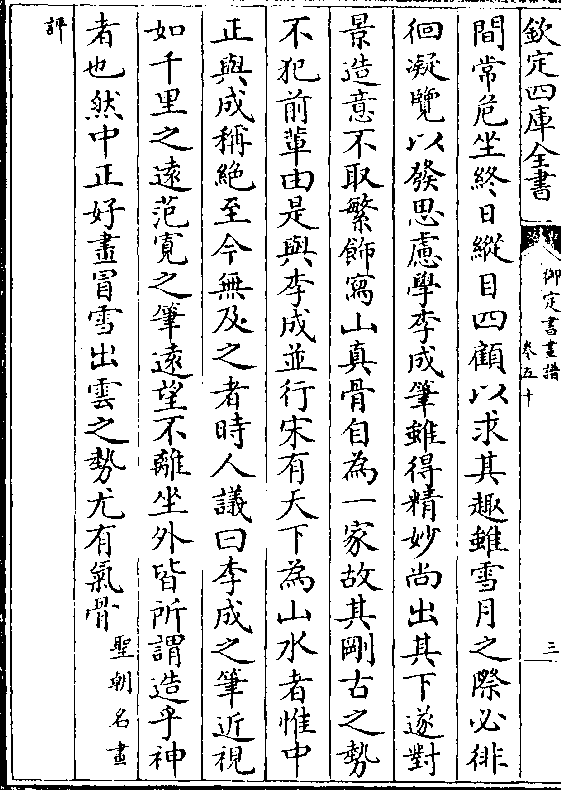 欽定四庫全書
御定書畫譜
卷五十
三
間常危坐終日縱目四顧以求其趣雖雪月之際必徘
徊凝覽以發思慮學李成筆雖得精妙尚出其下遂對
景造意不取繁飾寫山真骨自為一家故其剛古之勢
不犯前輩由是與李成並行宋有天下為山水者惟中
正與成稱絶至今無及之者時人議曰李成之筆近視
如千里之遠范寛之筆遠望不離坐外皆所謂造乎神
者也然中正好畫冒雪出雲之勢尤有氣骨聖朝名畫
評